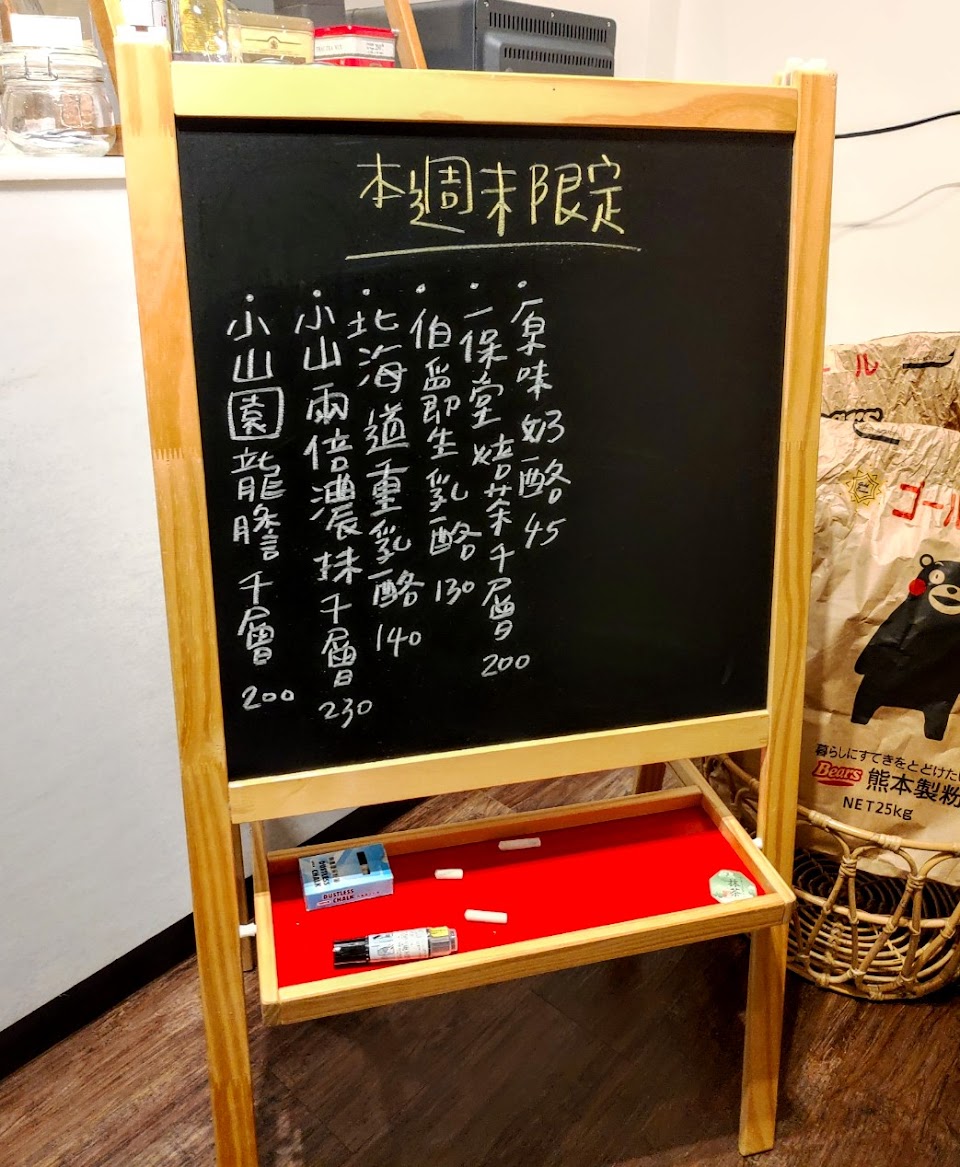 本週末限定
・原味奶酪 45
・一保堂焙茶千層 200
・伯爵生乳酪 130
・北海道重乳酪 140
・小山兩倍濃抹千層 230
・小山園龍膽千層 200
ール
ゴール
暮らしにすてきをとどけたい
Bears 熊本製粉
NET25kg
DUSTLESS
CHALK
抹茶